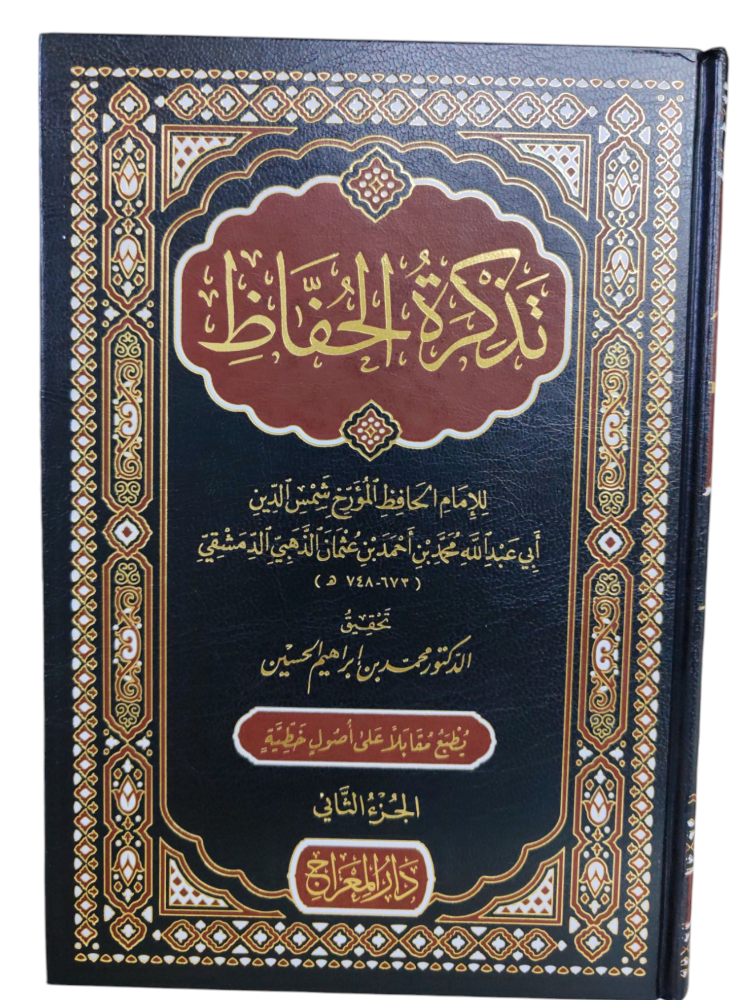 تَذْكِرَةُ الحُفَّاظِ
لِلإِمَامِ الحَافِظِ المُؤَرِّخِ شَمْسِ الدِّينِ
أَبِي عَبْدِ اللَّهِ مُحَمَّدِ بْنِ أَحْمَدَ بْنِ عُثْمَانَ الذَّهَبِيِّ الدِّمَشْقِيِّ
( ٦٧٣-٧٤٨ هـ )
تَحْقِيقُ
الدكتور محمد بن إبراهيم الحسين
يُطْبَعُ مُقَابَلًا عَلَى أُصُولٍ خَطِّيَّةٍ
الجُزْءُ الثَّانِي
دَارُ المِعْرَاجِ